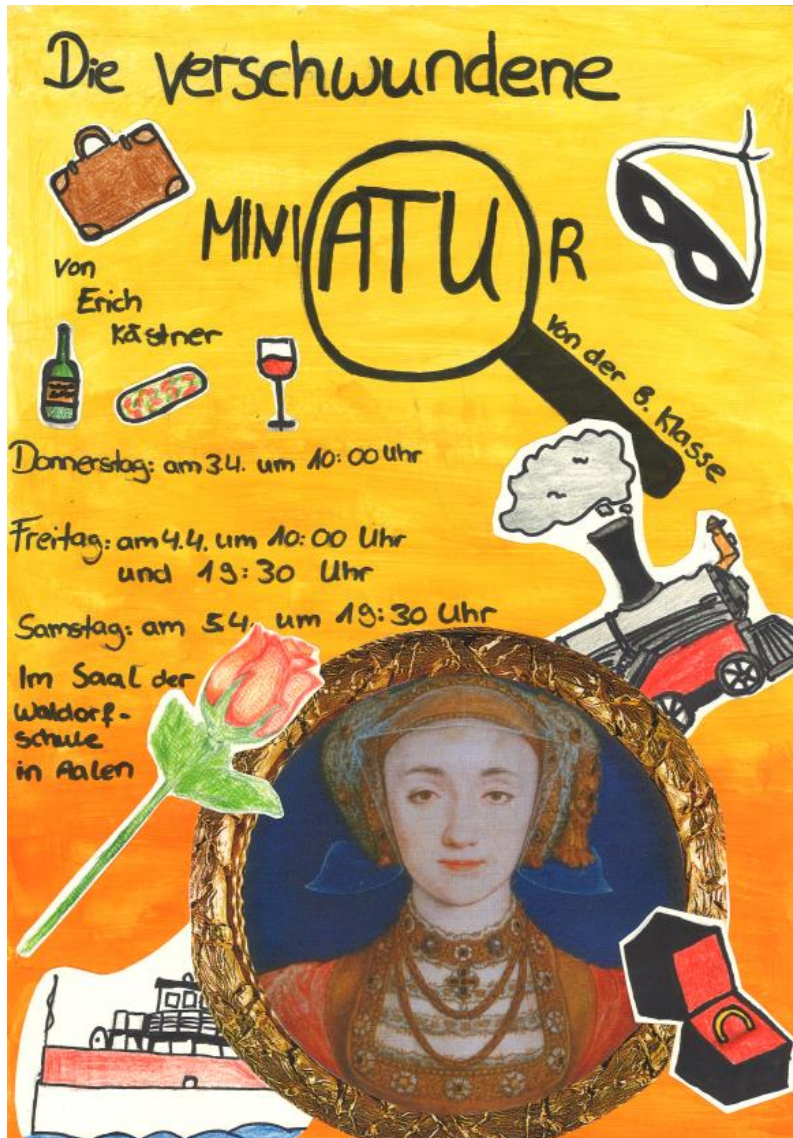 Die verschwundene
MINIATUR
von
Erich
Kästner
von der 8. Klasse
Donnerstag: am 3.4. um 10:00 Uhr
Freitag: am 4.4. um 10:00 Uhr
und 19:30 Uhr
Samstag: am 5.4. um 19:30 Uhr
Im Saal der
Waldorf-
schule
in Aalen